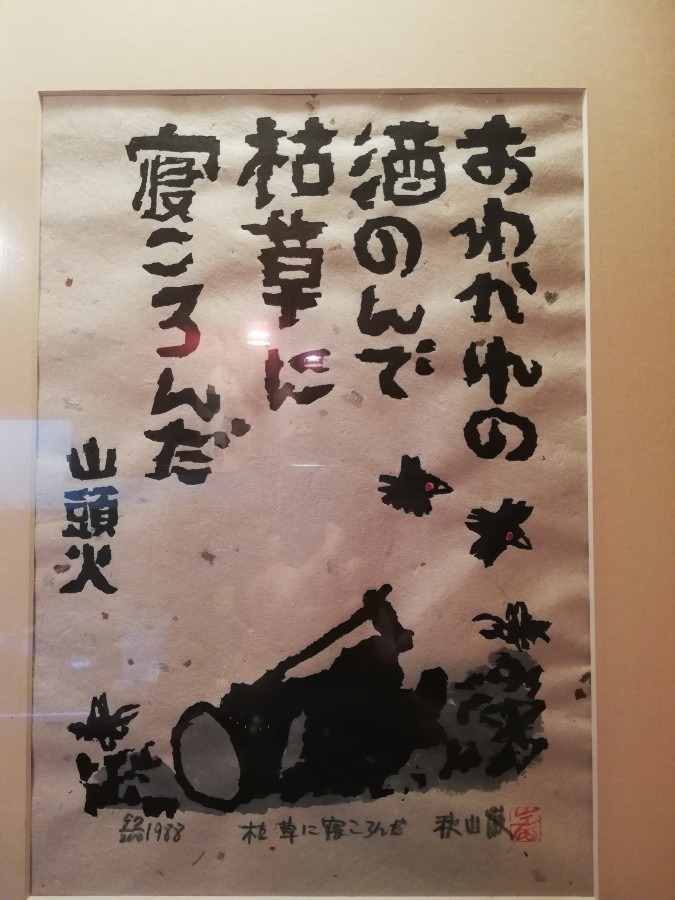 おわかれの
酒のんで
枯草に
寝ころんだ
山頭火
97/200 1988 枯草に寝ころんだ 秋山巌